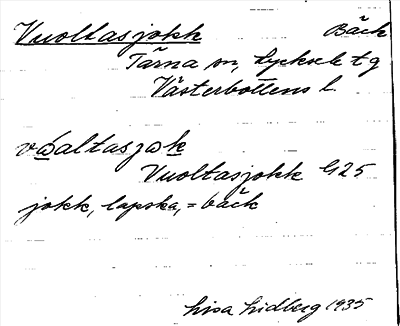 Vuoltasjokk Bäck
Tärna sn, Lycksele tg
Västerbottens l.
vǫ́altasjǫk
Vuoltasjokk G25
jokk, lapska, = bäck
Lisa Lidberg 1935